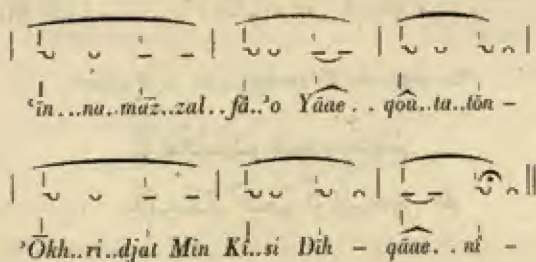 ‘in...na..maz̄..zal..fâ..’o Yāae . . qôu..ta..tōn –
’Ōkh..ri..djat Min Kî..si Dih – qāae . . nî –